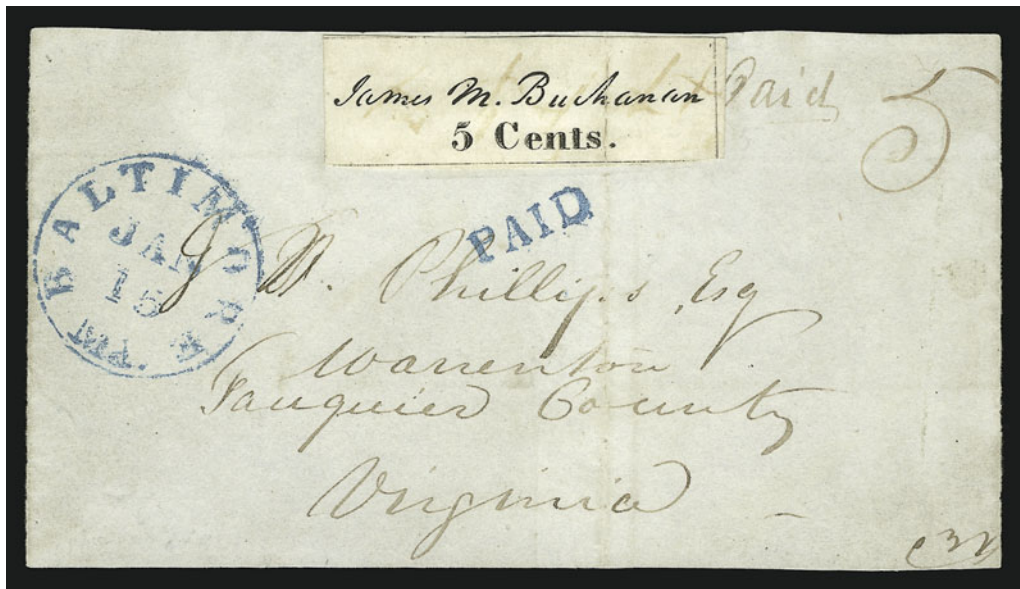 James M. Buchanan
5 Cents.
Paid 5
BALTIMORE Md.
JAN
15
PAID
J W. Phillips, Esq
Warrenton
Fauquier County
Virginia